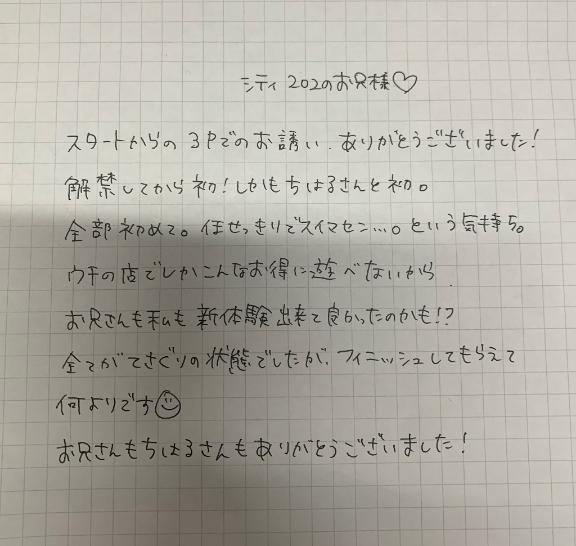 シティ 202のお兄様♡
スタートからの 3Pでのお誘い、ありがとうございました!
解禁してから初!しかもちはるさんと初。
全部初めて。任せっきりでスイマセン…。という気持ち。
ウチの店でしかこんなお得に遊べないから
お兄さんも私も新体験出来て良かったのかも!?
全てがてさぐりの状態でしたが、フィニッシュしてもらえて
何よりです☺
お兄さんもちはるさんもありがとうございました!